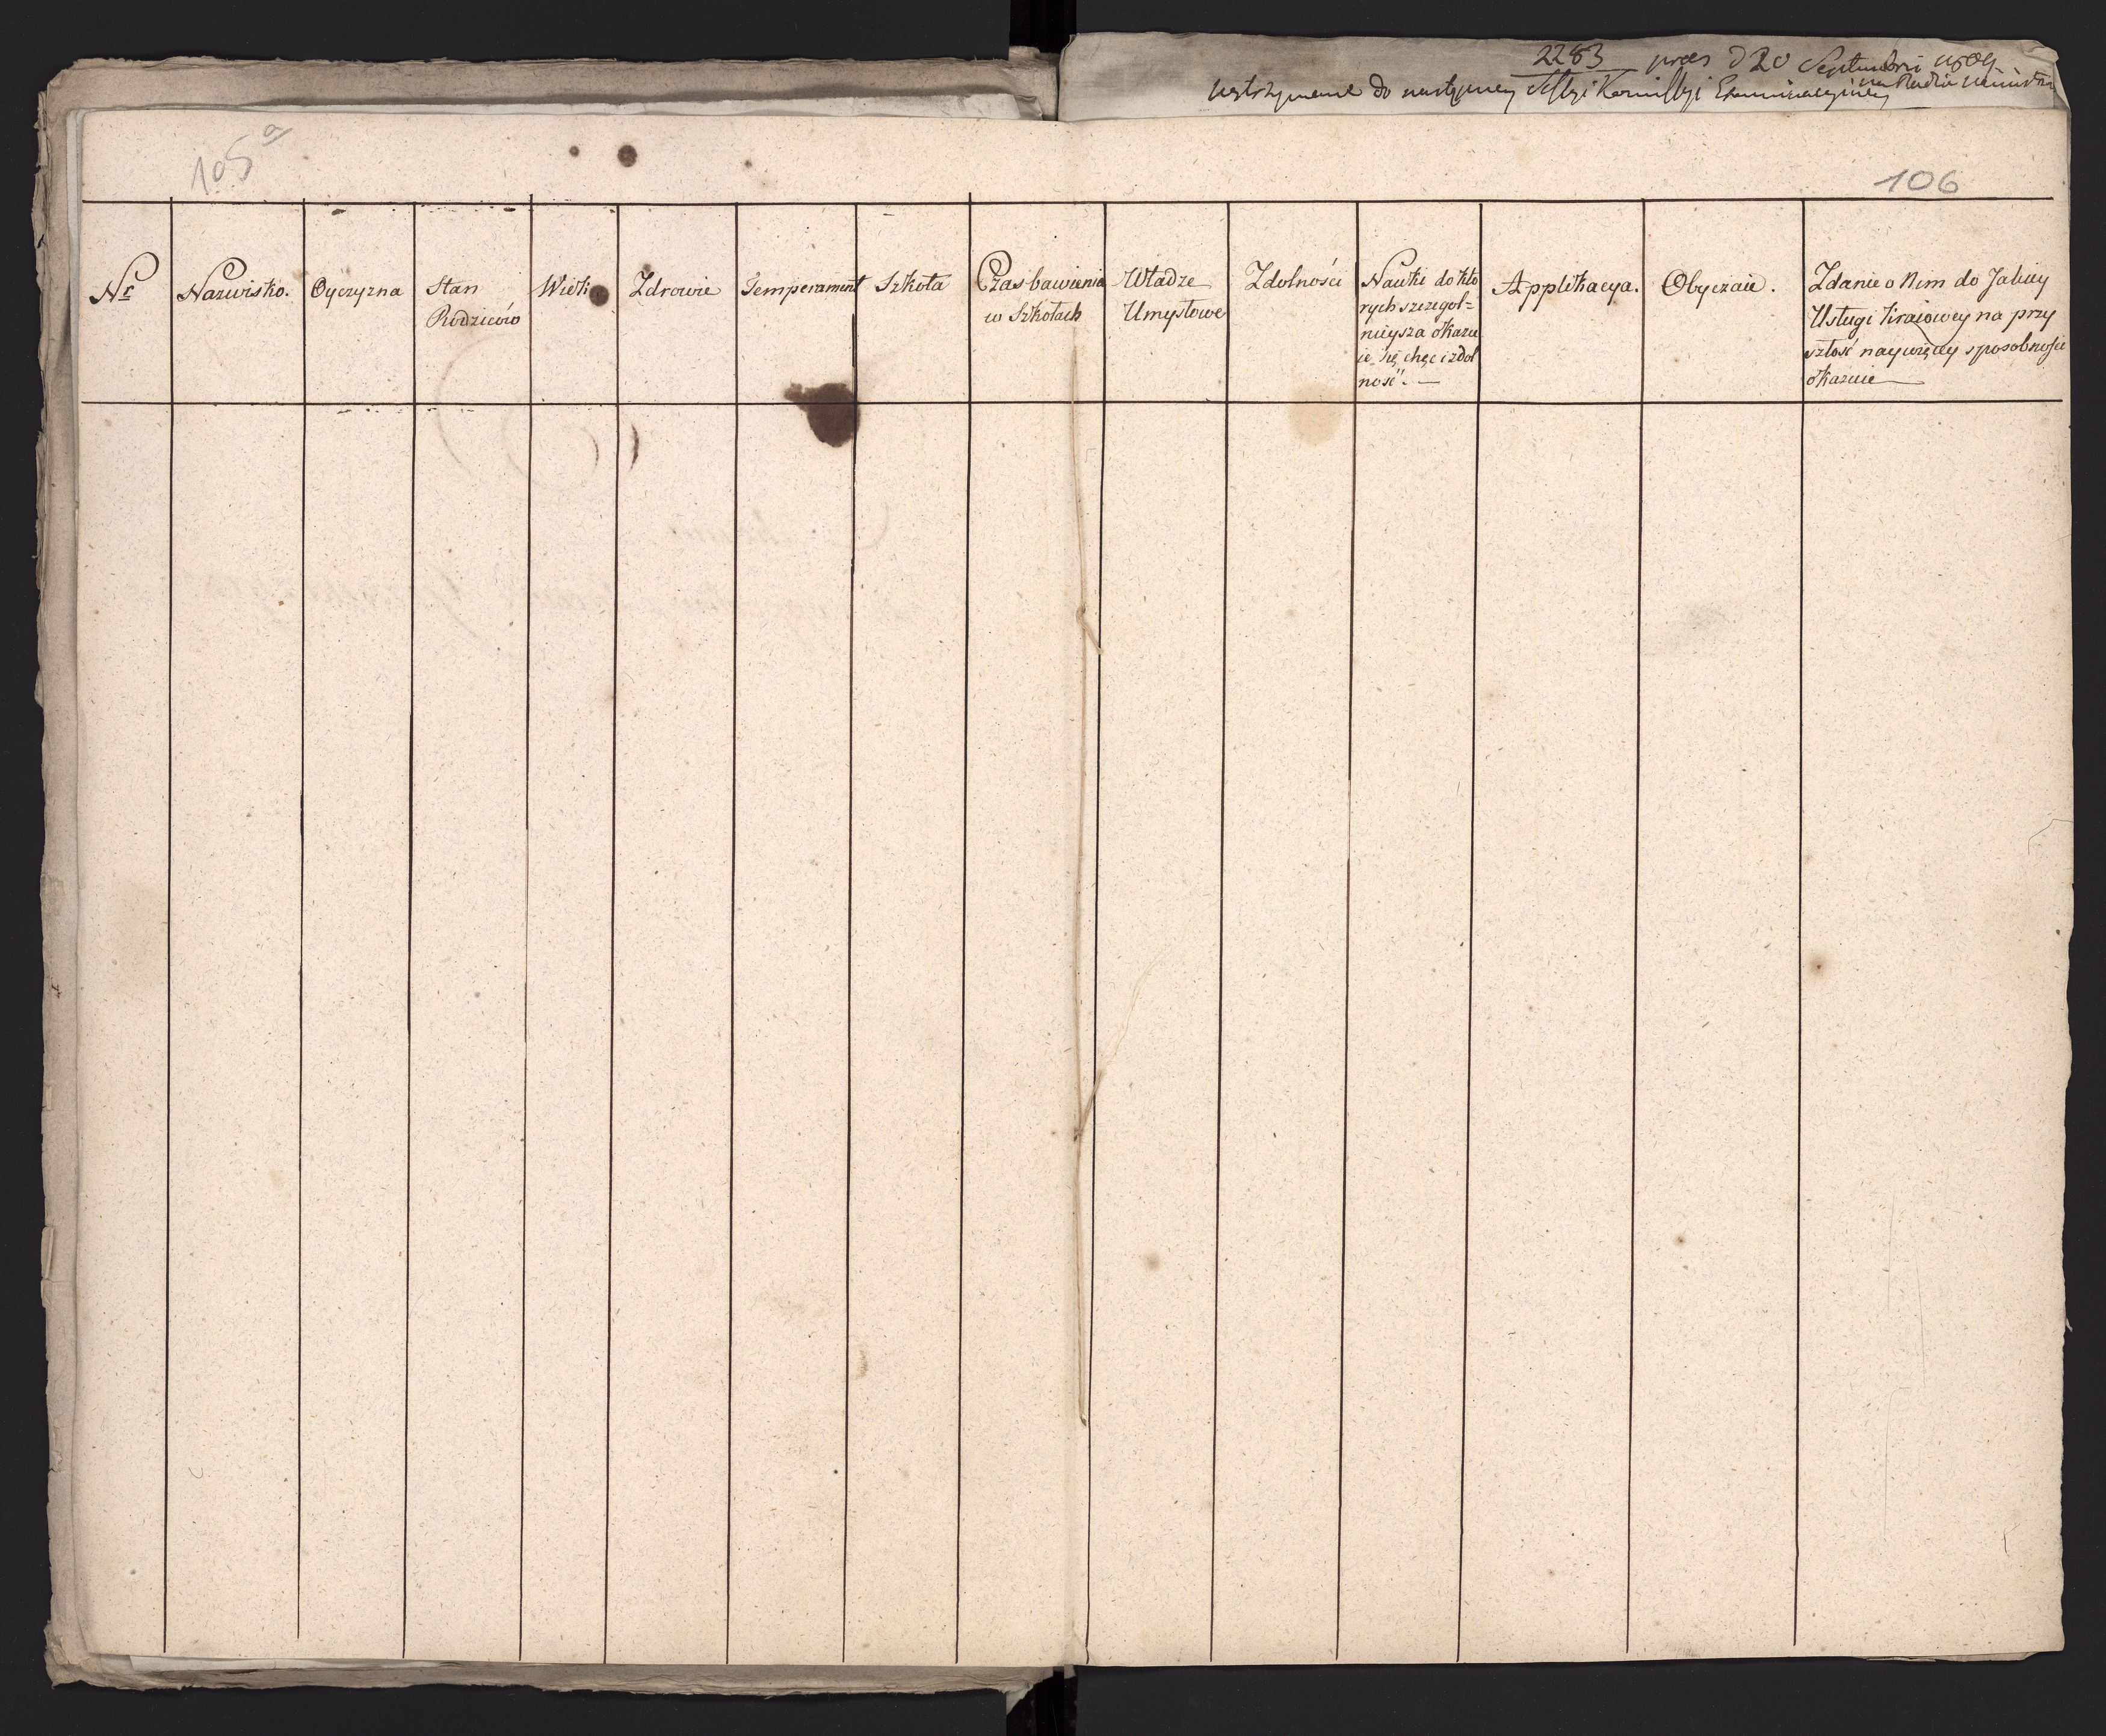 2283 præs d 20 Septembri 1809
wstrzymane do następney Sessyi Kommissyi Examinacyiney
105 a
106
Nr
Nazwisko.
Oyczyzna
Stan
Rodziców
Wiek
Zdrowie
Temperament
Szkoła
Czas bawienia
w Szkołach
Władze
Umysłowe
Zdolności
Nauki do któ
rych szczegol=
nieysza okazu
ie się chęć i zdol
ność". —
Applikacya.
Obyczaie.
Zdanie o Nim do Jakiey
Usługi kraiowey na przy
szłość naywięcey sposobności
okazuie —